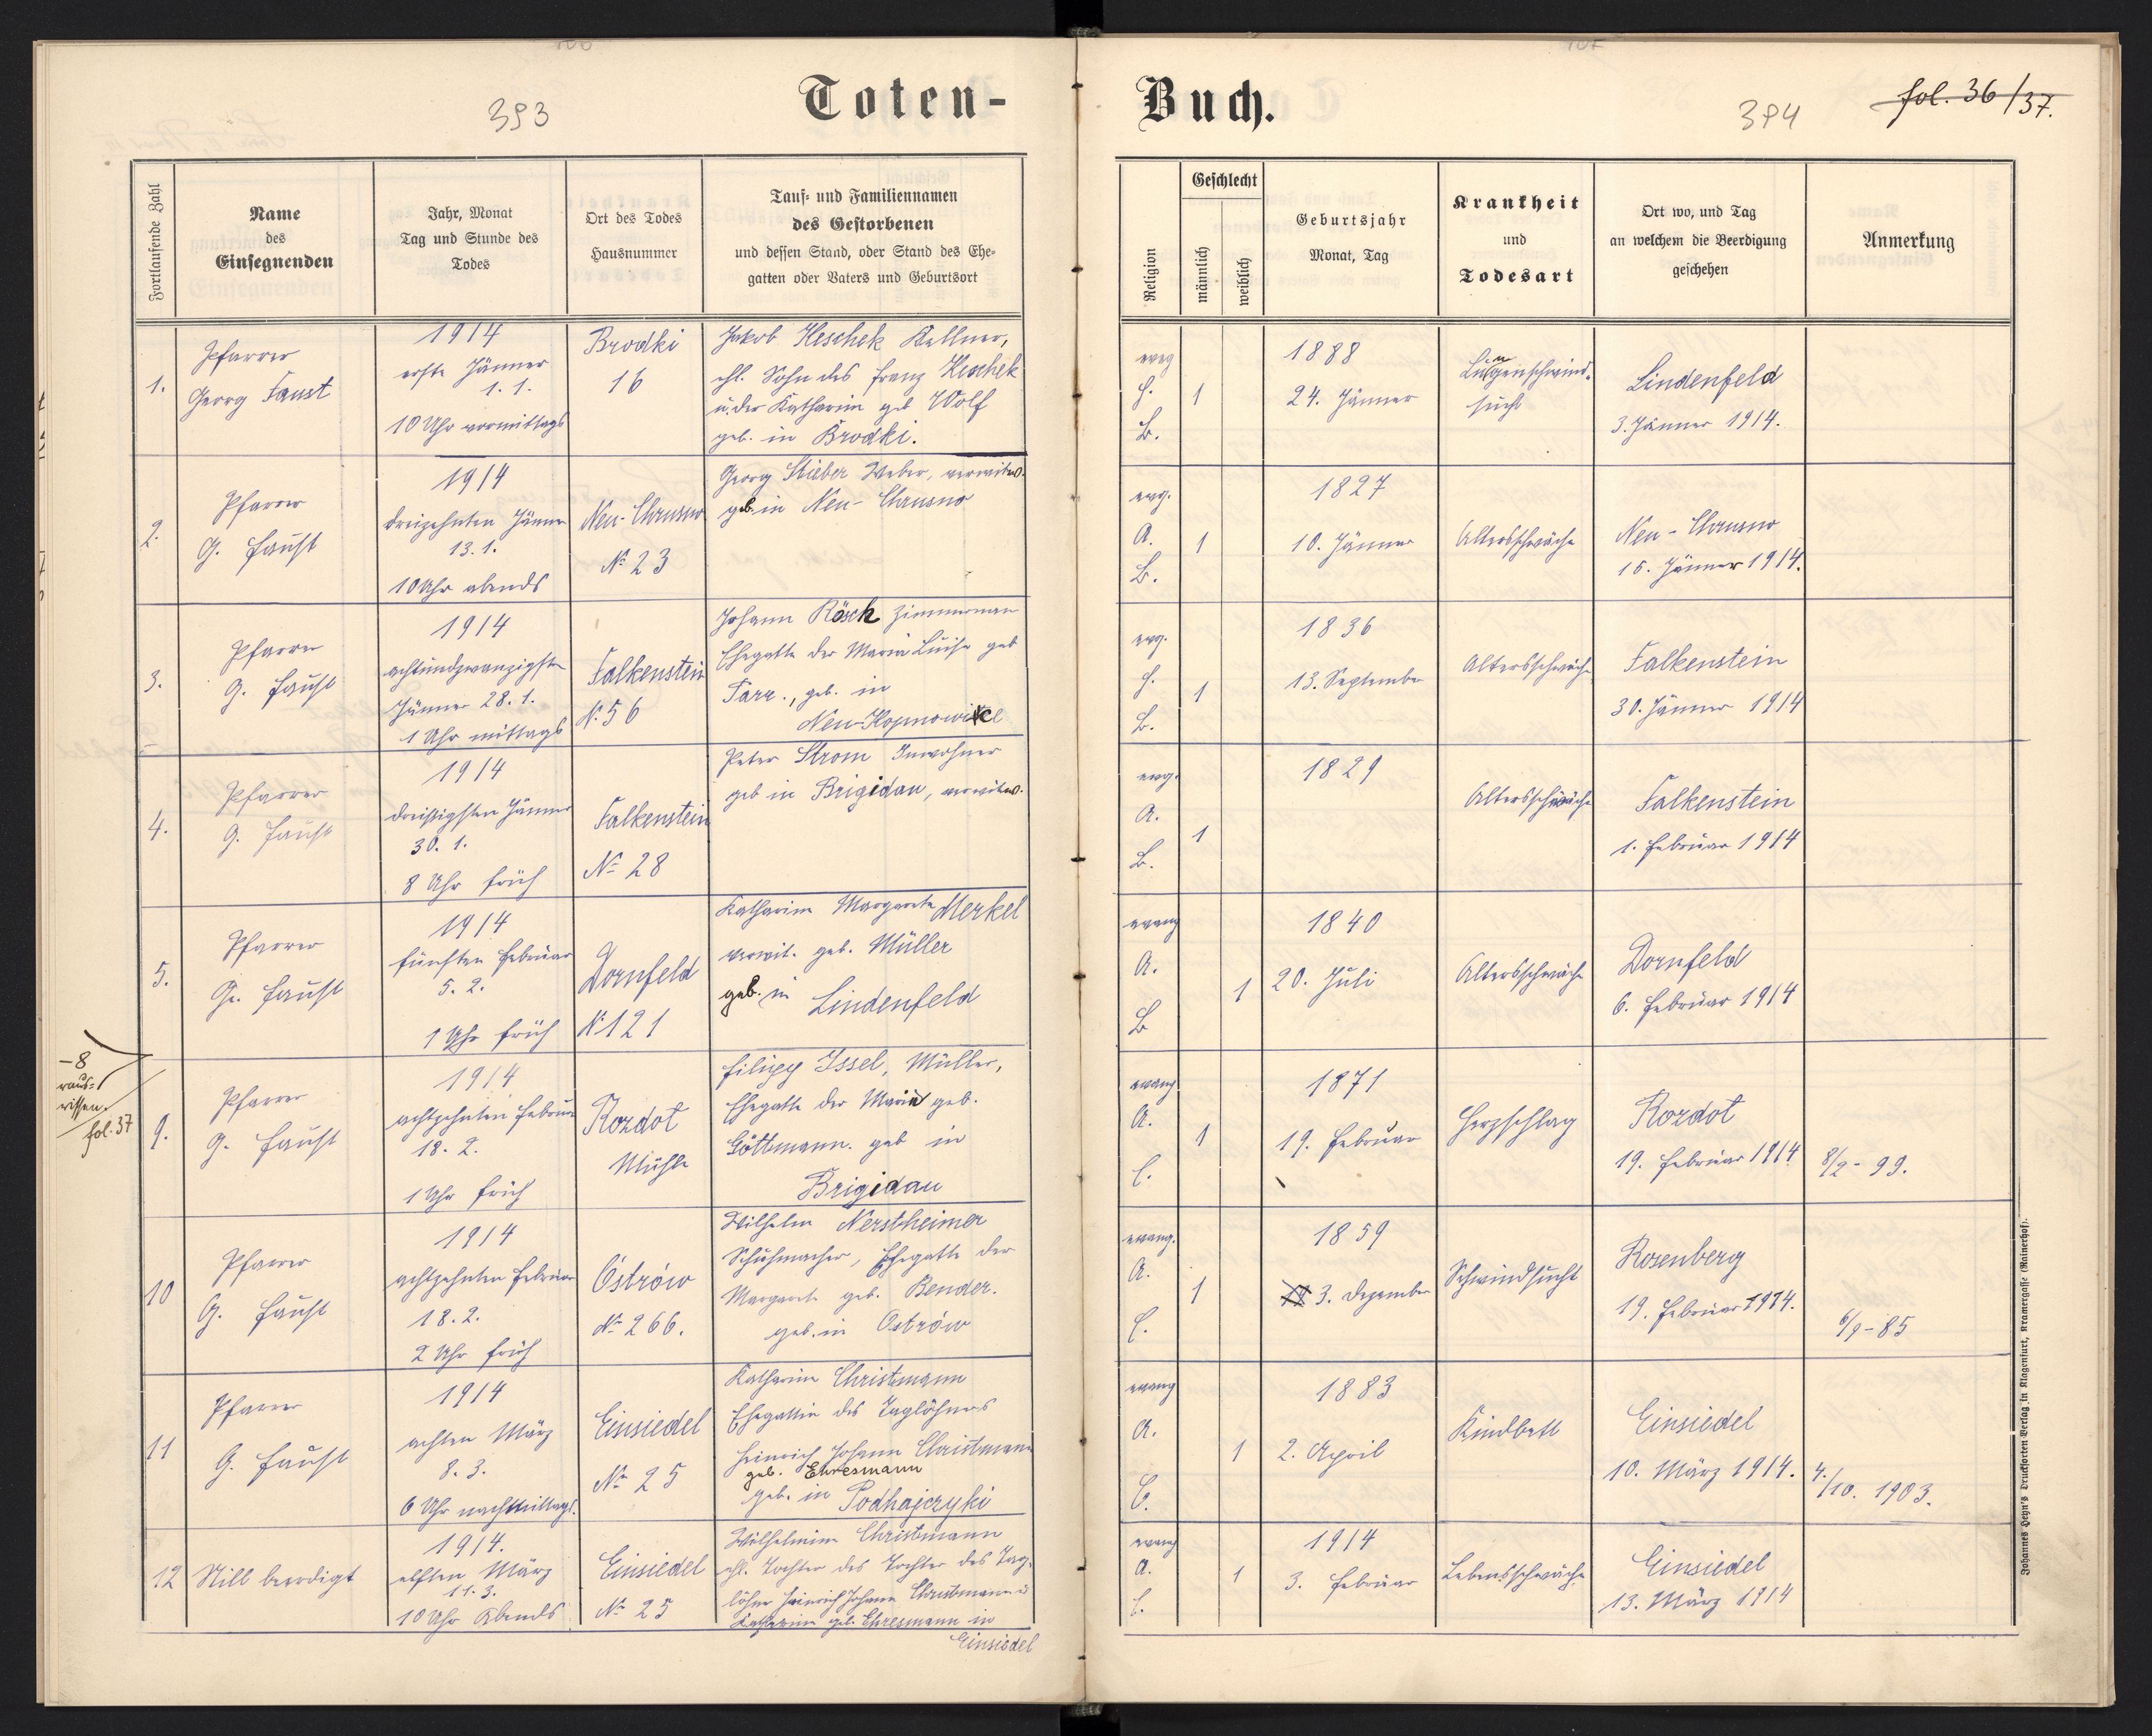 393
Toten-
Fortlaufende Zahl
Name
des
Einsegnenden
Jahr, Monat
Tag und Stunde des
Todes
Ort des Todes
Hausnummer
Tauf- und Familiennamen
des Gestorbenen
und dessen Stand, oder Stand des Ehe-
gatten oder Vaters und Geburtsort
1.
Pfarrer
Georg Faust
1914
erste Jänner
1. 1.
10 Uhr vormittags
Brodki
16
Jakob Heschek Kellner,
ehl. Sohn des Franz Heschek
u. der Katharina geb Wolf
geb. in Brodki.
2.
Pfarrer
G. Faust
1914
dreizehnten Jänner
13. 1.
10 Uhr abends
Neu-Chrusno
No 23
Georg Stieber Weber, verwitw.
geb. in Neu-Chrusno
3.
Pfarrer
G. Faust
1914
achtundzwanzigsten
Jänner 28. 1.
1 Uhr mittags
Falkenstein
N. 56
Johann Rösch Zimmerman
Ehegatte der Maria Luise geb
Farr., geb. in
4.
Pfarrer
G. Faust
1914
dreißigsten Jänner
30. 1.
8 Uhr früh
Falkenstein
No 28
Peter Strom Inwohner
geb in Brigidau, verwitw.
5.
Pfarrer
G. Faust
1914
fünften Februar
5. 2.
1 Uhr früh
Dornfeld
No 121
Katharina Margareta Merkel
verwit. geb. Müller
geb. in Lindenfeld
-8
fol. 37
9.
Pfarrer
G. Faust
1914
achtzehnten Februar
18. 2.
1 Uhr früh
Rozdot
Mühle
Filipp Issel, Müller,
Ehegatte der Maria geb.
Göttmann. geb in
Brigidau
10
Pfarrer
G. Faust
1914
achtzehnten Februar
18. 2.
2 Uhr früh
Ostrów
No 266.
Wilhelm Nerstheimer
Schuhmacher, Ehegatte der
Margaret geb. Bender.
geb. in Ostrów
11
Pfarrer
G. Faust
1914
achten März
8. 3.
6 Uhr nachmittags.
Einsiedel
No 25
Katharina Christmann
Ehegattin des Taglöhners
Heinrich Johann Christmann
geb. Ehresmann
geb. in Podhajczyki
12
Still beerdigt
1914.
elften März
11. 3.
10 Uhr Abends
Einsiedel
No 25
Wilhelmine Christmann
ehl. Tochter des Tochter des Tag-
löhner Heinrich Johann Christmann u
Katharina geb. Ehresmann in
Einsiedel
Buch.
394
fol. 36/37.
Religion
Geschlecht
männlich
weiblich
Geburtsjahr
Monat, Tag
Krankheit
und
Todesart
Ort wo, und Tag
an welchem die Beerdigung
geschehen
Anmerkung
evg
H.
B.
1
1888
24. Jänner
Lungenschwind-
sucht
Lindenfeld
3. Jänner 1914.
evg.
A.
B.
1
1827
10. Jänner
Altersschwäche
Neu-Chrusno
15. Jänner 1914.
evg.
H.
B.
1
1836
13. September
Altersschwäche
Falkenstein
30. Jänner 1914
evg.
A.
B.
1
1829
Altersschwäche
Falkenstein
1. Februar 1914
evang
A.
B
1
1840
20. Juli
Altersschwäche
Dornfeld
6. Februar 1914
evang
A.
C.
1
1871
19. Februar
Herzschlag
Rozdot
19. Februar 1914
8/2- 99.
evang.
A.
C.
1
1859
3. Dezember
Schwindsucht
Rosenberg
19. Februar 1914.
6/9-85
evang
A.
C.
1
1883
2. April
Kindbett
Einsiedel
10. März 1914.
4./10. 1903.
evang
A.
C.
1
1914
3. Februar
Lebensschwäche
Einsiedel
13. März 1914
Johannes Heyn's Drucksorten Verlag in Klagenfurt, Kramergasse (Rainerhof).